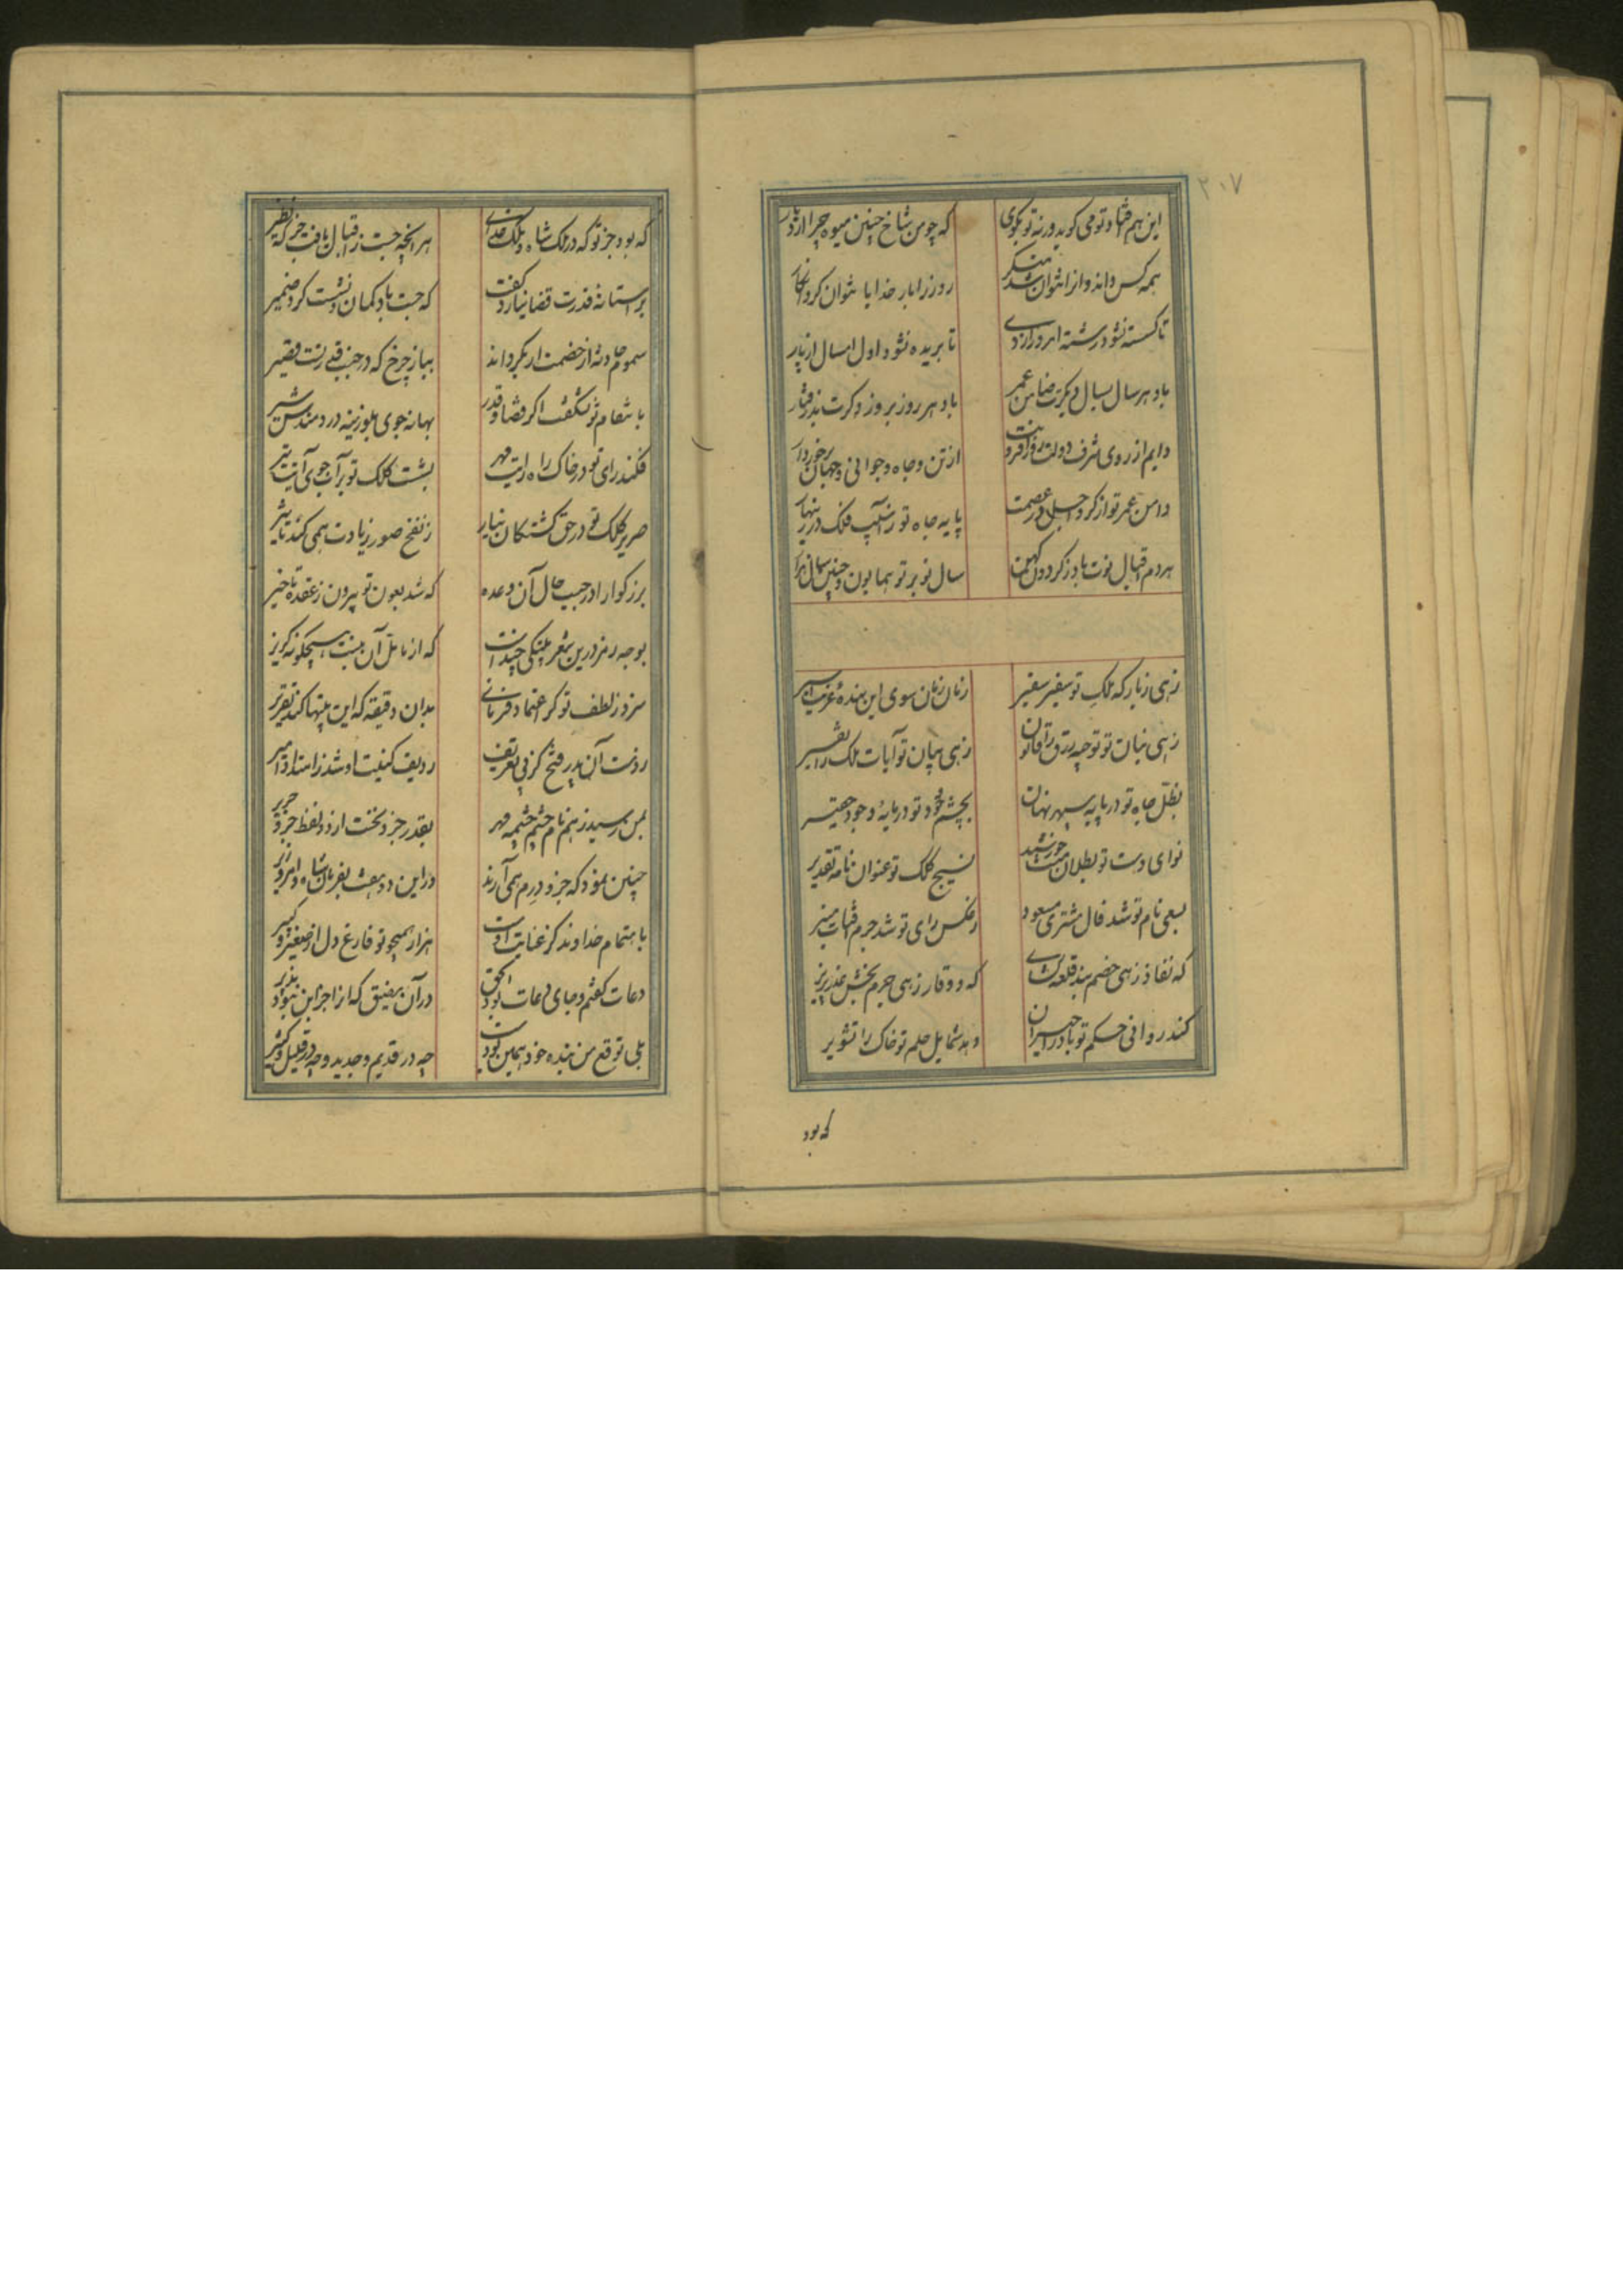 ۲۰۷
این هم قتاد تو می کوید ورنه تو بکوی که چو من شاخ چنین میوه چرا ارد بار
همه کس داند و انرا نتوان شد منکر روز را بار خدایا نتوان کرد انکار
تا کسسته نشود رشته امروز از دی تا بریده نشود اول امسال از پار
باد هر سال بسال دکرت ضامن عمر باد هر روز بروز دکرت
دایم از روی شرف دولت از تن و جاه و جوانی و جهان برخوردار
دامن عمر تو از کرد اجل در عصمت پایه جاه تو ز اسیب فلک در زنهار
هر دم اقبال نوت باد ز کردون کهن سال نو بر تو همایون و چنین سال هزار
زهی ز بار که ملک تو سفیر سفیر زمان زمان سوی این بنده غریب اسیر
زهی بنان تو توجیه رزق را قانون زهی بیان تو آیات ملک را تفسیر
بظل جاه تو در پایه سپهر نهان بچشم جود تو در مایه وجود حقیر
نوای دست تو بطلان خورشید نسیج کلک تو عنوان نامه تقدیر
بسعی نام تو شد فال مشتری مسعود ز عکس رای تو شد جرم آفتاب منیر
که نفاذ زهی خصم بند قلعه کشای که وقار زهی جرم بخش عذر پذیر
کند روانی حکم تو باد را حیران دهد شمایل حلم تو خاک را تشویر
که بود
که بود جز تو که در ملک شاه و ملک خدای هر انچه جست ز اقبال یافت جز که نظیر
بر استانه قدرت قضا نیارد کفت که جست باد کمان و نشست کرد ضمیر
سموم حادثه از خصمت ار بکرداند بیاز چرخ که در جنب رتبت
با نتقام تو نشکفت اکر قضا و قدر بهانه جوی بلوزینه در دهندش سیر
فکند رای تو در خاک راه رایت مهر بشست کلک تو بر آب جوی آیت تیر
صریر کلک تو در حق کشتکان نیاز ز نفخ صور زیادت همی کند تاثیر
بزرکوارا در حسب حال آن وعده که شد بعون تو بیرون ز عقده تاخیر
بوجه رمز درین شعر بیتکی چندست که از تامل آن نیست هیچکونه کزیر
سزد ز لطف تو کر اعتماد فرمائی بدان دقیقه که این بیتها کند تقریر
ردیف کنیت او شد ز ابتدا میر
بمن رسید ز هم نام چشم چشمه مهر بقدر جزو نخست از دو لفظ جزو
چنین نمود که جزو دوم همی آرند در این دو هفته بفرمان شاه و امر وزیر
باهتمام خداوند کز عنایت اوست هزار همچو تو فارغ دل از صغیر و کبیر
دعات کفتم و جای دعات بود الحق در آن مضیق که از اجز این نبود
بلی توقع من بنده خود همین بودست چه در قدیم و جدید و چه در قلیل و کثیر